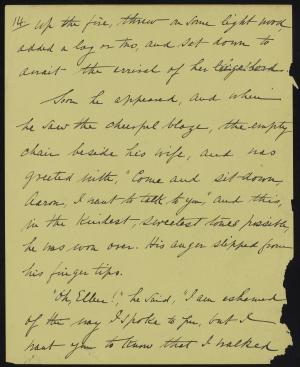 14/ up the fire, threw on some light wood,
added a log or two, and sat down to
await the arrival of her liege lord.
Soon he appeared, and when
he saw the cheerful blaze, the empty
chair beside his wife, and was
greeted with, "Come and sit down,
Aaron, I want to talk to you," and this,
in the kindest, sweetest tones possible,
he was won over. His anger slipped from
his finger tips.
"Oh, Ellen!", he said, "I am ashamed
of the way I spoke to you, but I
want you to know that I walked